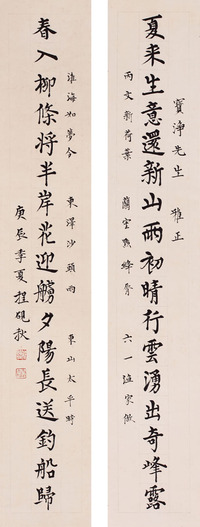 寶淨先生 雅正
夏来生意還新山雨初晴行雲湧出奇峰露
文新荷葉 絳脣 六一漁家傲
淮海如夢令 東澤沙頭雨 東山太平時
春入柳條将半岸花迎艣夕陽長送釣船歸
庚辰季夏程硯秋